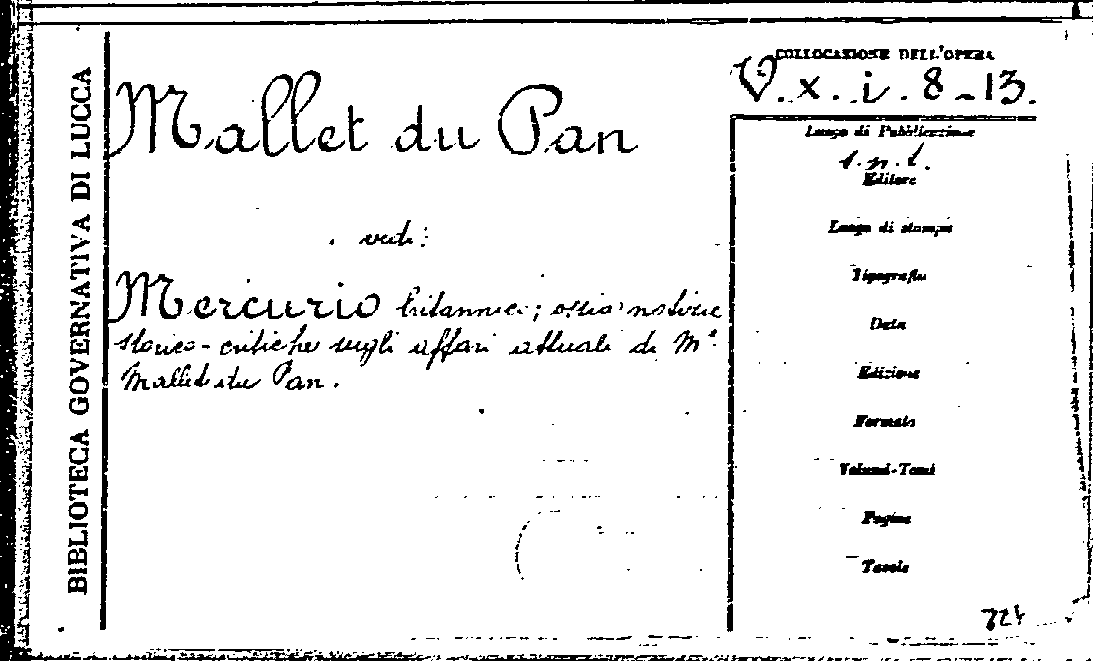 BIBLIOTECA GOVERNATIVA DI LUCCA
Mallet du Pan
vedi:
Mercurio britannico; ossia notizie
storico-critiche sugli affari attuali di Mr.
Mallet du Pan.
COLLOCAZIONE DELL'OPERA
V. x. i. 8-13.
Luogo di Pubblicazione
s.n.t.
Editore
Luogo di stampa
Tipografia
Data
Edizione
Formato
Volumi-Tomi
Pagine
Tavole